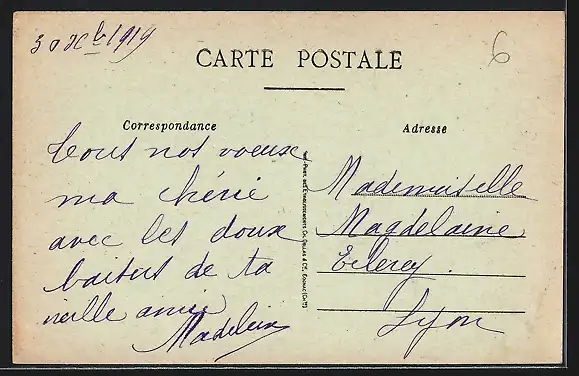 30 Xbre 1919
6
CARTE POSTALE
Correspondance
Adresse
Tous nos voeux
ma chérie
avec les doux
baisers de ta
vieille amie
Madeleine
Mademoiselle
Magdelaine
Lyon